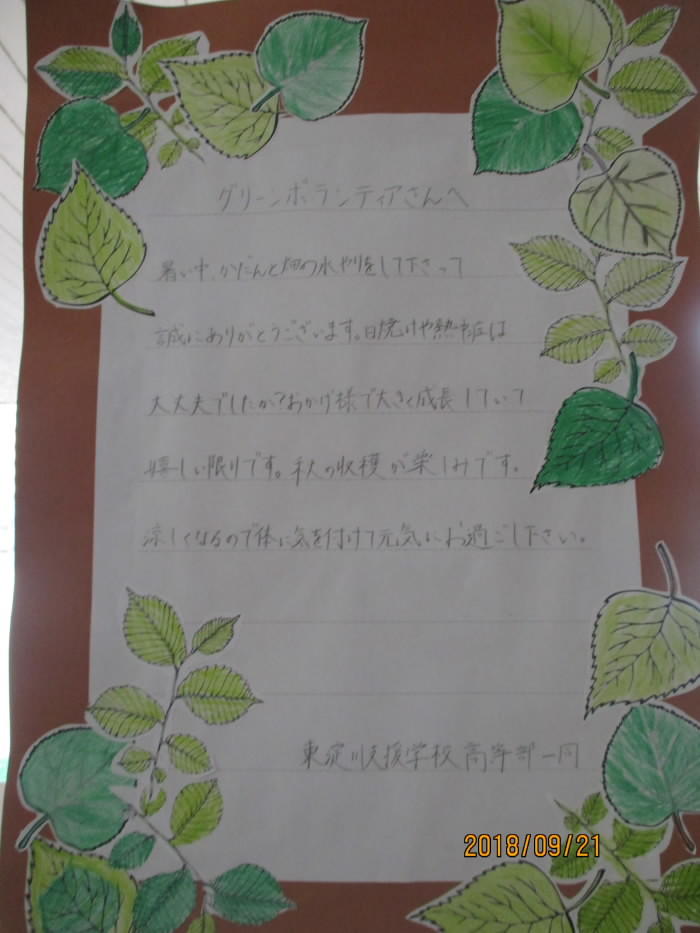 グリーンボランティアさんへ
暑い中、かだんと畑の水やりをして下さって
誠にありがとうございます。日焼けや熱中症は
大丈夫でしたか?おかげ様で大きく成長していて
嬉しい限りです。秋の収穫が楽しみです。
涼しくなるので体に気を付けて元気にお過ごし下さい。
東淀川支援学校高等部一同
2018/09/21